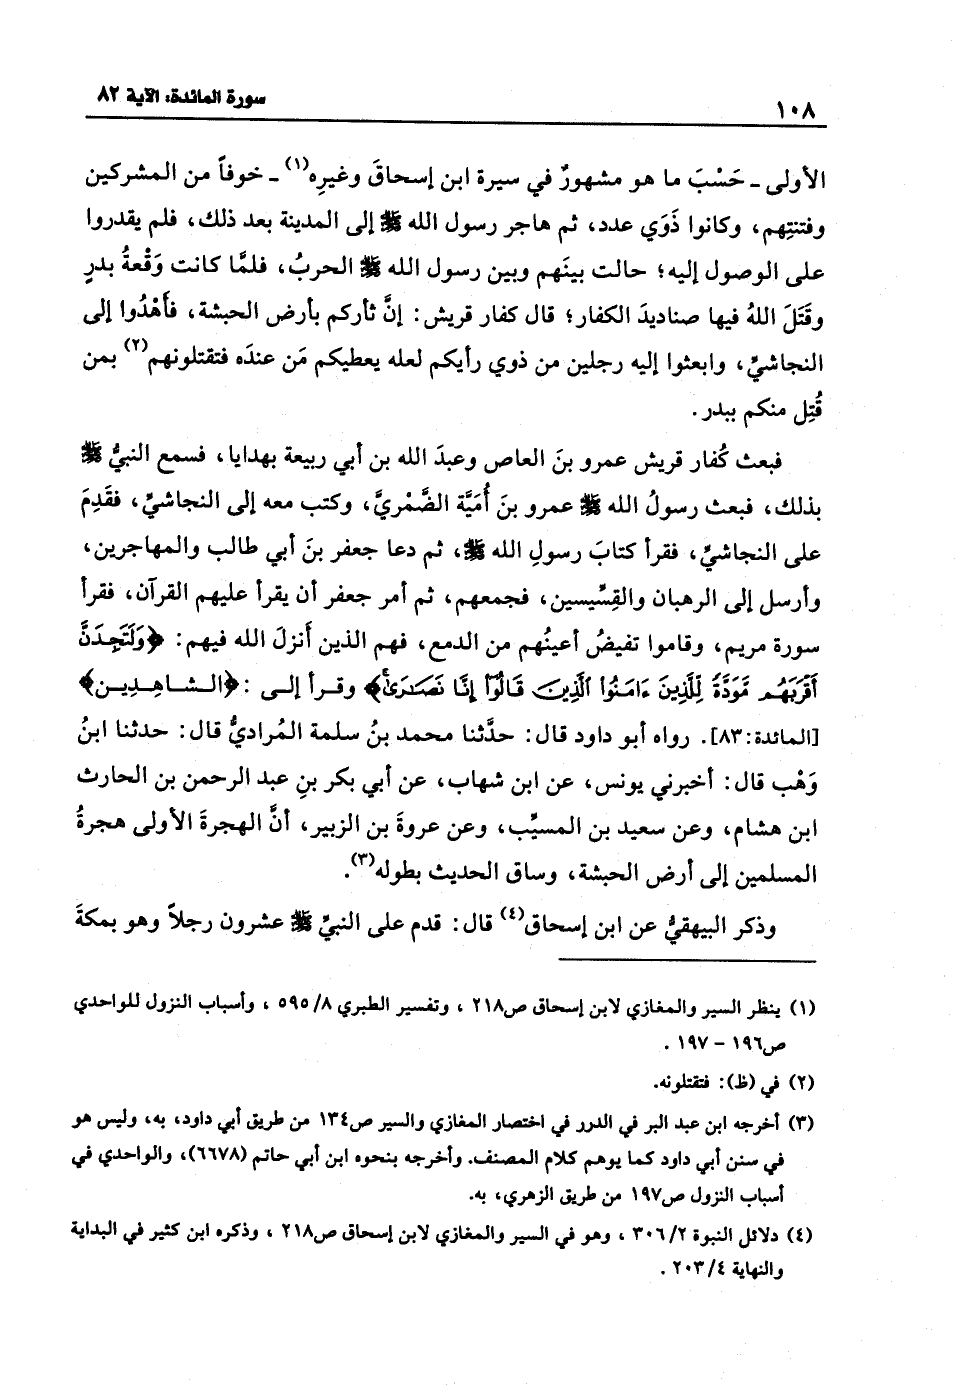 ١٠٨
سورة المائدة: الآية ٨٢
الأولى ـ حَسْبَ ما هو مشهورٌ في سيرة ابن إسحاقَ وغيرِه(١) ـ خوفاً من المشركين
وفتنتِهم، وكانوا ذَوَي عدد، ثم هاجر رسول الله ﷺ إلى المدينة بعد ذلك، فلم يقدروا
على الوصول إليه؛ حالت بينَهم وبين رسول الله ﷺ الحربُ، فلمَّا كانت وَقْعةُ بدرٍ
وقَتَلَ اللهُ فيها صناديدَ الكفار؛ قال كفار قريش: إنَّ ثأركم بأرض الحبشة، فأَهْدُوا إلى
النجاشيِّ، وابعثوا إليه رجلين من ذوي رأيكم لعله يعطيكم مَن عندَه فتقتلونهم(٢) بمن
قُتِل منكم ببدر.
فبعث كُفار قريش عمرو بنَ العاص وعبدَ الله بن أبي ربيعة بهدايا، فسمع النبيُّ ﷺ
بذلك، فبعث رسولُ الله ﷺ عمرو بنَ أُمَيَّة الضَّمْريَّ، وكتب معه إلى النجاشيِّ، فقَدِمَ
على النجاشيِّ، فقرأ كتابَ رسولِ الله ﷺ، ثم دعا جعفر بنَ أبي طالب والمهاجرين،
وأرسل إلى الرهبان والقِسِّيسين، فجمعهم، ثم أمر جعفر أن يقرأ عليهم القرآن، فقرأ
سورة مريم، وقاموا تفيضُ أعينُهم من الدمع، فهم الذين أَنزلَ الله فيهم: ﴿وَلَتَجِدَنَّ
أَقْرَبَهُم مَّوَدَّةً لِّلَّذِينَ ءَامَنُوا الَّذِينَ قَالُوٓا إِنَّا نَصَٰرَىٰ﴾ وقرأ إلى: ﴿الشاهِدِين﴾
[المائدة: ٨٣]. رواه أبو داود قال: حدَّثنا محمد بنُ سلمة المُراديُّ قال: حدثنا ابنُ
وَهْب قال: أخبرني يونس، عن ابن شهاب، عن أبي بكر بنِ عبد الرحمن بن الحارث
ابن هشام، وعن سعيد بن المسيِّب، وعن عروةَ بن الزبير، أنَّ الهجرةَ الأولى هجرةُ
المسلمين إلى أرض الحبشة، وساق الحديث بطوله(٣).
وذكر البيهقيُّ عن ابن إسحاق(٤) قال: قدم على النبيِّ ﷺ عشرون رجلاً وهو بمكةَ
(١) ينظر السير والمغازي لابن إسحاق ص٢١٨ ، وتفسير الطبري ٨/ ٥٩٥ ، وأسباب النزول للواحدي
ص١٩٦ – ١٩٧ .
(٢) في (ظ): فتقتلونه.
(٣) أخرجه ابن عبد البر في الدرر في اختصار المغازي والسير ص١٣٤ من طريق أبي داود، به، وليس هو
في سنن أبي داود كما يوهم كلام المصنف. وأخرجه بنحوه ابن أبي حاتم (٦٦٧٨)، والواحدي في
أسباب النزول ص١٩٧ من طريق الزهري، به.
(٤) دلائل النبوة ٢/ ٣٠٦ ، وهو في السير والمغازي لابن إسحاق ص٢١٨ ، وذكره ابن كثير في البداية
والنهاية ٤/ ٢٠٣ .